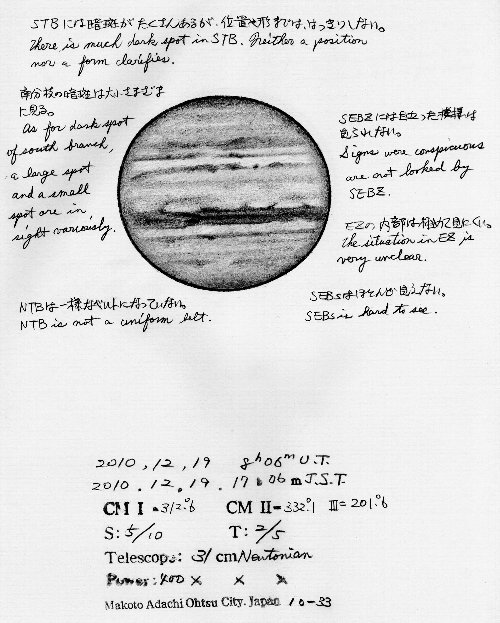 STBには暗斑がたくさんあるが、位置や形までは、はっきりしない。
There is much dark spot in STB. Neither a position
nor a form clarifies.
南分枝の暗斑は大小さまざま
に見る。
As for dark spot
of south branch,
a large spot
and a small
spot are in
sight variously.
SEBZには目立った模様は
見られない。
Signs were conspicuous
are not looked by
SEBZ.
EZの内部は極めて見にくい。
the situation in EZ is
very unclear.
NTBは一様なベルトになっていない。
NTB is not a uniform belt.
SEBsはほとんど見えない。
SEBs is hard to see.
2010, 12, 19 8h06m U.T.
2010. 12. 19. 17h06m J.S.T.
CM I = 312.°6 CM II = 332.°1 III = 201.°6
S: 5/10 T: 2/5
Telescope: 31 cm Newtonian
Power: 400 × × ×
Makoto Adachi Ohtsu City. Japan 10-33